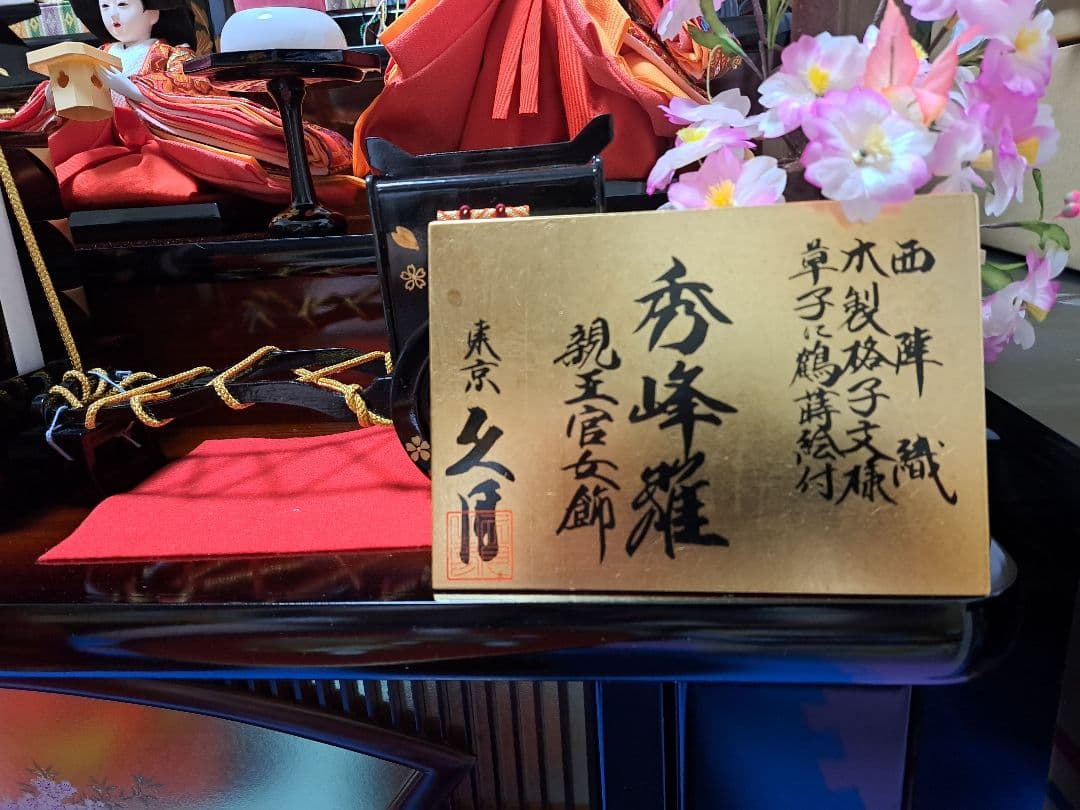 西陣織
木製格子文様
草子に鶴蒔絵付
秀峰雛
親王官女飾
東京 久月